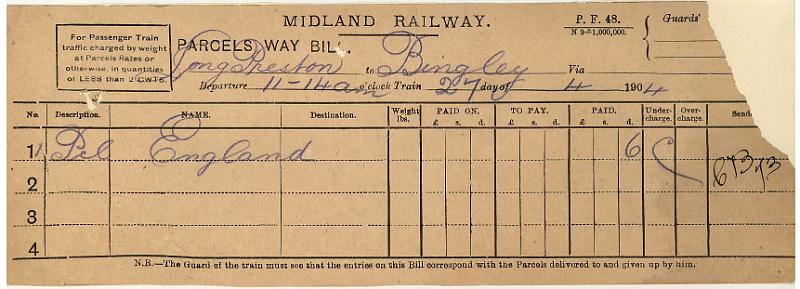 MIDLAND RAILWAY.
P. F. 48.
N 9-61,000,000.
Guards'
For Passenger Train
traffic charged by weight
at Parcels Rates or
otherwise, in quantities
of LESS than 2 CWTS.
PARCELS WAY BILL.
Long Preston to Bingley Via
Departure 11-14am o'clock Train 27 day of 4 1904
No. Description. NAME. Destination. Weight lbs. PAID ON. £ s. d. TO PAY. £ s. d. PAID. £ s. d. Under-charge. Over-charge. Send
1 Pcl England 6
2
3
4
N.B.—The Guard of the train must see that the entries on this Bill correspond with the Parcels delivered to and given up by him.